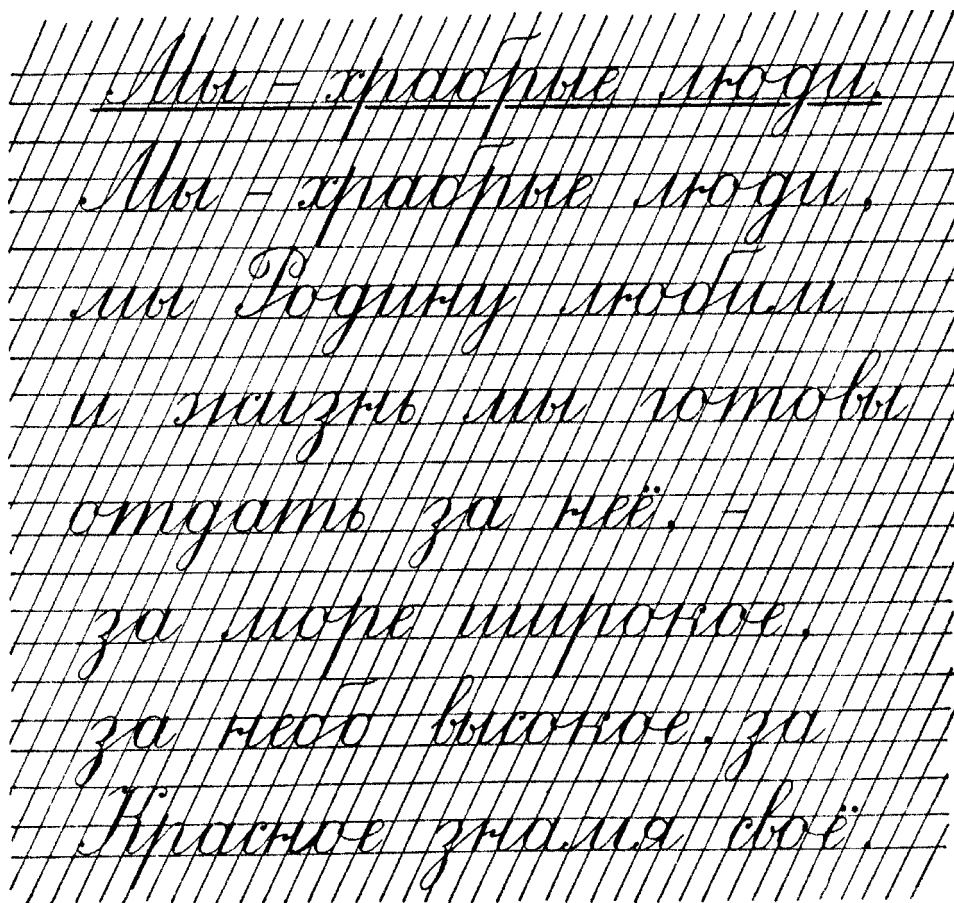 Мы - храбрые люди.
Мы - храбрые люди,
мы Родину любим
и жизнь мы готовы
отдать за неё, -
за море широкое,
за небо высокое, за
Красное знамя своё.